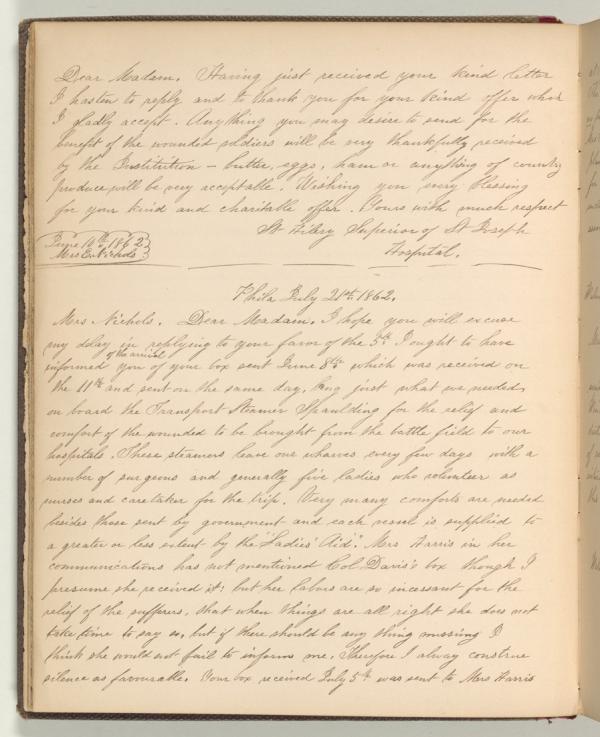 Dear Madam. Having just received your kind letter
I hasten to reply and to thank you for your kind offer which
I gladly accept. Anything you may desire to send for the
benefit of the wounded soldiers will be very thankfully received
by the Institution - butter, eggs, ham or anything of country
produce will be very acceptable. Wishing you every blessing
for your kind and charitable offer. Yours with much respect
St Hilary Superior of St Joseph
Hospital.
June 10th 1862
Mrs E. Nichols
Phila July 21st 1862.
Mrs Nichols. Dear Madam. I hope you will excuse
my delay in replying to your favor of the 5th. I ought to have
informed you of the arrival of your box sent June 8th which was received on
the 11th and sent on the same day, being just what we needed,
on board the Transport Steamer Spaulding for the relief and
comfort of the wounded to be brought from the battle field to our
hospitals. These steamers leave our wharves every few days with a
number of surgeons and generally five ladies who volunteer as
nurses and caretaker for the trip. Very many comforts are needed
besides those sent by government and each vessel is supplied to
a greater or less extent by the "Ladies' Aid". Mrs Harris in her
communications has not mentioned Col Davis's box though I
presume she received it; but her labors are so incessant for the
relief of the sufferers, that when things are all right she does not
take time to say so, but if there should be any thing missing I
think she would not fail to inform me, therefore I alway construe
silence as favourable. Your box received July 5th was sent to Mrs Harris